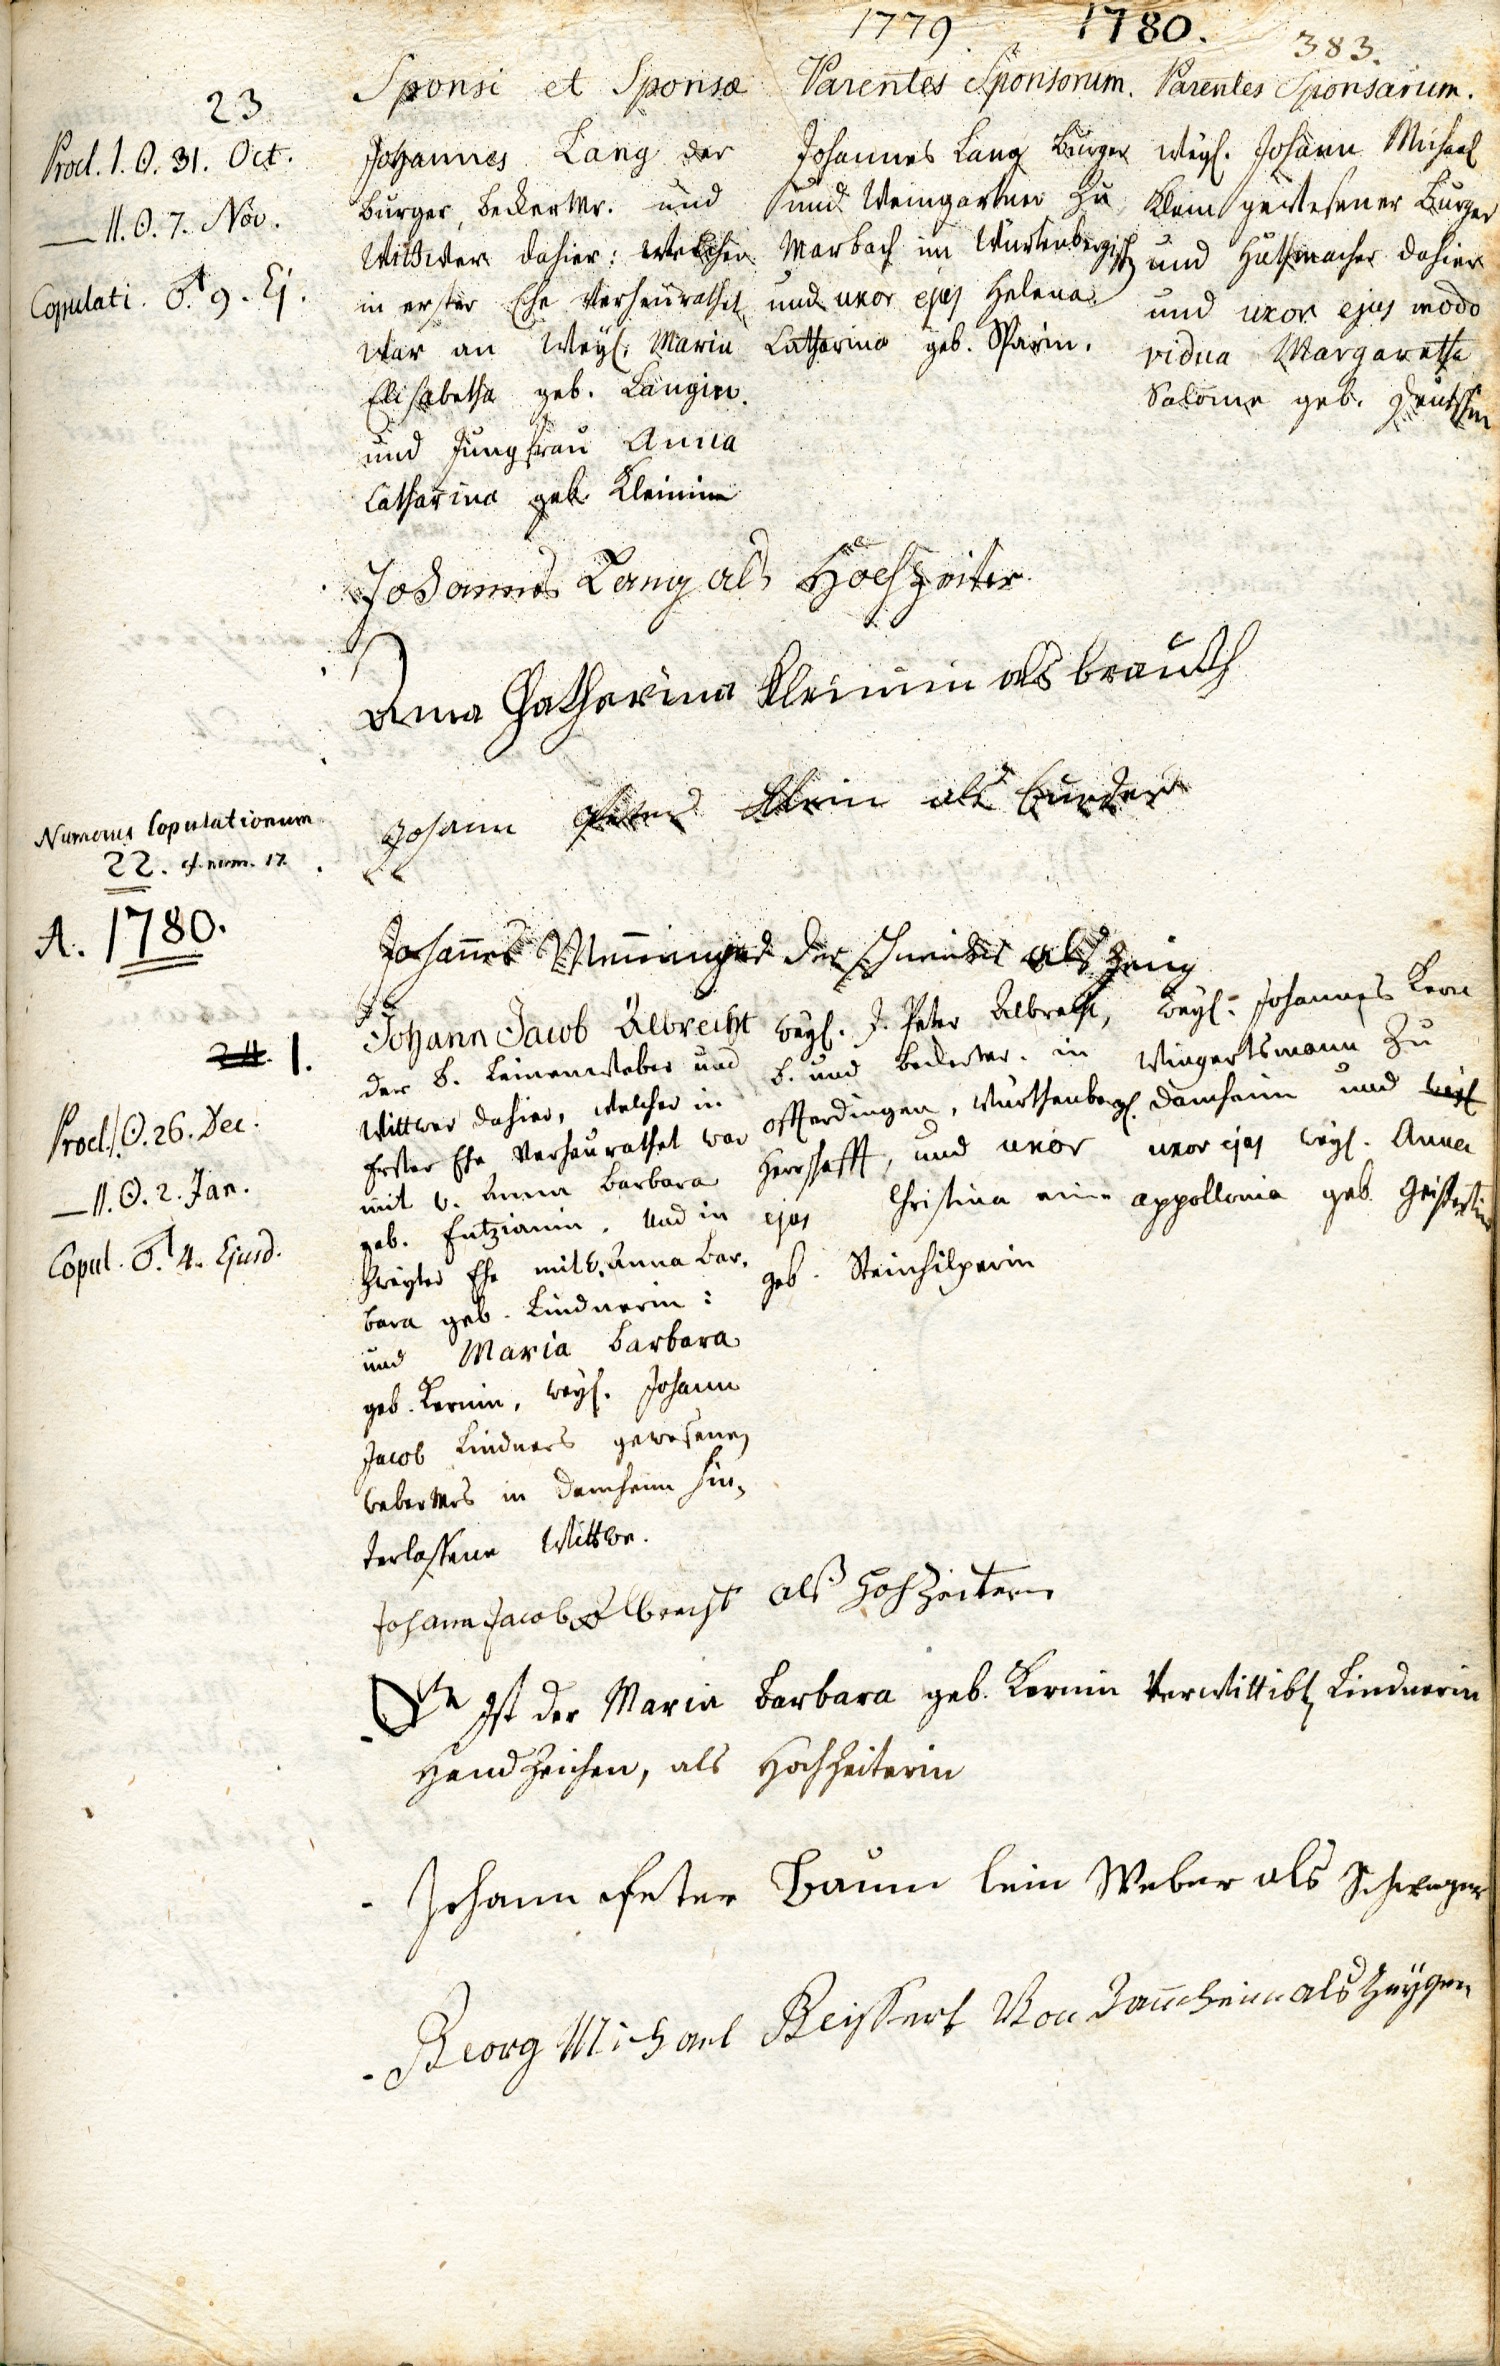 1779 1780.
383.
Sponsi et Sponsæ Parentes Sponsorum. Parentes Sponsarum.
23
Procl. I. ʘ. 31. Oct.
— II. ʘ. 7. Nov.
Copulati. ♂. 9. Ej.
Johannes Lang der
burger, beckermr. und
Wittwer dahier: welcher
in erster Ehe verheurathet
war an weyl. Maria
Elisabetha geb. Langin.
und Jungfrau Anna
Catharina geb. Kleinin
Johannes Lang burger
und Weingartner zu
Marbach im Würtenbergisch
und uxor ejus Helena
Catharina geb. Sparin.
weyl. Johann Michael
Klein gewesener burger
und Huthmacher dahier
und uxor ejus modo
vidua Margaretha
Salome geb.
Johannes Lang als Hochzeiter
Anna Catharina Kleinin als brauth
Johann Peter Klein als bruder
Johannes der schneider als Zeug
Numerus Copulationum
22. cf. num. 17.
A. 1780.
24. 1.
Procl. I. ʘ. 26. Dec.
— II. ʘ. 2. Jan.
Copul. ♂. 4. Ejusd.
Johann Jacob Albrecht
der b. Leinenweber und
Wittwer dahier, welcher in
Erster Ehe verheurathet war
mit v. Anna Barbara
geb. Und in
zweyter Ehe mit v. Anna Bar-
bara geb. Lindnerin:
und Maria Barbara
geb. Kernin, weyl. Johann
Jacob Lindners gewesenen
webermrs in Damheim hin-
terlassene Wittwe.
weyl. J. Peter Albrecht,
b. und beckermr. in
Offterdingen, Würthenbergl.
Herrschafft, und uxor
ejus Christina eine
geb. Steinhilperin
weyl. Johannes Kern
Wingertsmann zu
Damheim und weyl
uxor ejus weyl. Anna
Appollonia geb.
Johann Jacob Albrecht als Hochzeiter
Ist der Maria Barbara geb. Kernin verwittibt Lindnerin
Handzeichen, als Hochzeiterin
Johann Peter Baum lein Weber als Schwager
Georg Michael Geissert Von Dammheim als Zeygen